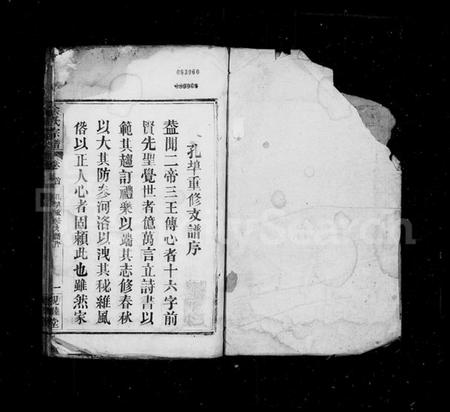 083960
孔埠重修支譜序
蓋聞二帝三王傳心者十六字前
賢先聖覺世者億萬言立詩書以
範其趨訂禮樂以端其志修春秋
以大其防參河洛以洩其秘維風
俗以正人心者固賴此也雖然家
氏宗譜
卷首
一